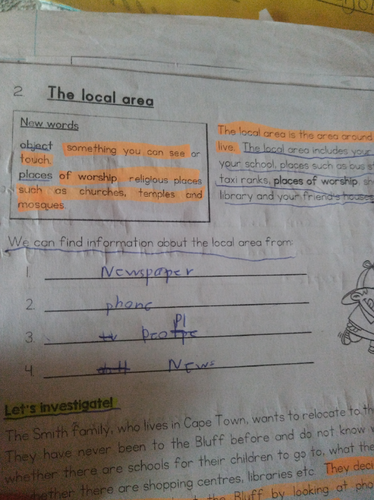 2 The local area
New words
object something you can see or
touch.
places of worship religious places
such as churches, temples and
mosques.
The local area is the area around
live. The local area includes your
your school, places such as bus s
taxi ranks, places of worship, sh
library and your friend's houses
We can find information about the local area from:
1 Newspaper
2 phone
3 people
4 News
Let's investigate!
The Smith Family, who lives in Cape Town, wants to relocate to th
They have never been to the Bluff before and do not know w
whether there are schools for their children to go to, what the
whether there are shopping centres, libraries etc. They deci
the Bluff by looking at